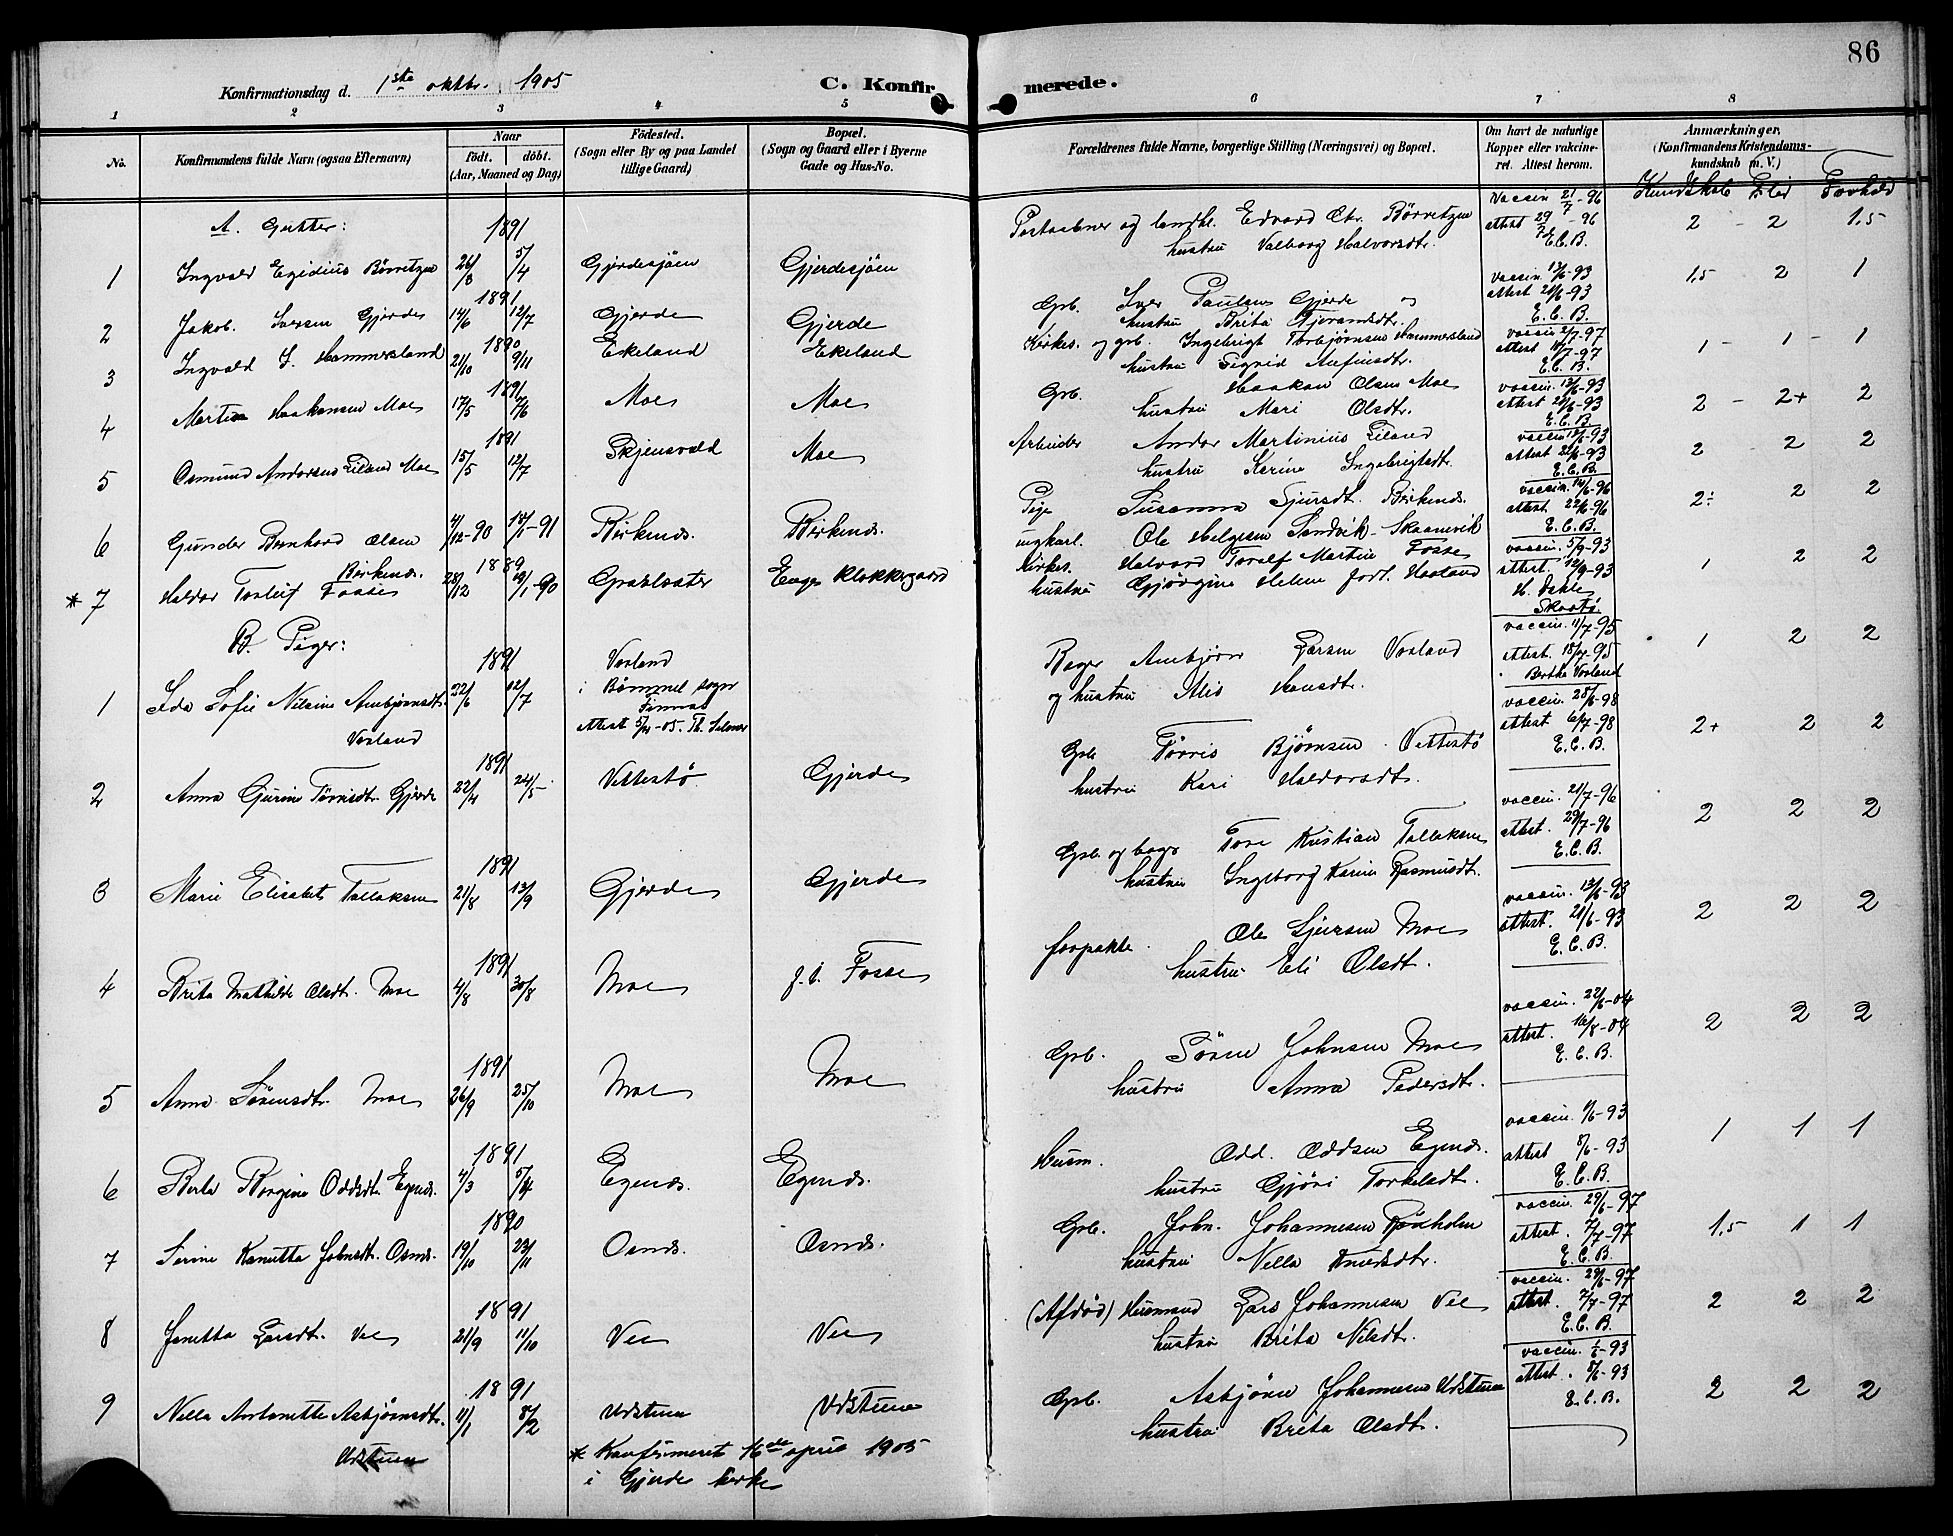 86
Konfirmationsdag d. 1ste oktbr. 1905
C. Konfirmerede.
1 2 3 4 5 6 7 8
No.
Konfirmandens fulde Navn (ogsaa Efternavn)
Naar
født. döbt.
(Aar, Maaned og Dag)
Födested.
(Sogn eller By og paa Landet
tillige Gaard)
Bopæl.
(Sogn og Gaard eller i Byerne
Gade og Hus-No.
Forældrenes fulde Navne, borgerlige Stilling (Næringsvei) og Bopæl.
Om havt de naturlige
Kopper eller vakcine-
ret. Attest herom.
Anmærkninger.
(Konfirmandens Kristendoms-
kundskab m. V.)
Kundskab Flid Forhold
A. Gutter:
1891
1 Ingvald Egidius Børretzen 26/3 5/4 Gjerdesjøen Gjerdesjøen
Postaabner og landhl. Edvard Chr. Børretzen
hustru Valborg Halvorsdtr.
vaccin 21/7-96
attest 29/7-96
E.C.B.
2 - 2 1.5
1891
2 Jakob Iversen Gjerde 14/6 12/7 Gjerde Gjerde
Grb. Iver Paulsen Gjerde
hustru Brita Tjerandsdtr.
vaccin 13/6-93
attest 21/6-93
E.C.B.
1.5 2 1
1890
3 Ingvald I. Hammersland 21/10 9/11 Ekeland Ekeland
Kirkes. og grb. Ingebrigt Torbjørnsen Hammersland
hustru Sigrid Anfinsdtr.
vaccin 2/7-97
attest 10/7-97
E.C.B.
1 - 1 - 1
1891
4 Martin Haakensen Moe 17/5 7/6 Moe Moe
Grb. Haakon Olsen Moe
hustru Mari Olsdtr.
vaccin. 13/6-93
attest 21/6-93
E.C.B.
2 - 2+ 2
1891
5 Osmund Andorsen Eiland Moe 15/5 12/7 Skjensvold Moe
Arbeider Andor Martinius Eiland
hustru Karine Ingebrigtsdt.
vaccin 13/6-93
attest 21/6-93
E.C.B.
2 2 2
6 Gunder Bernhard Olsen 4/12-90 18/1-91 Birkenes. Birkenes.
Birkenes.
Pige Susanna Sjursdt. Birkenes.
ungkarl. Ole Helgesen Sandvik - Skaanevik
vaccin. 14/6-96
attest 22/6-96
E.C.B.
2÷ 2 2
1889
* 7 Haldor Torleif Fosse 28/12 19/1-90 Enge Klokkergaard
Kirkes. Halvard Toralf Martin Fosse
hustru Gjørgine Helene født Haaland
vaccin. 5/9-93
attest. 12/9-93
1 2 2
B. Piger:
1891
1 Ida Sofie Nilsine Ambjørnsdt. 22/6 12/7
Vorland
Vorland
i Bømmel sogn
Finnaas
Bager Ambjørn Larsen Vorland
og hustru Alis Hansdt.
vaccin. 11/7-95
attest. 18/7-95
Berthe Vorland
1 2 2
1891
2 Anna Gurine Tørrisdtr. Gjerde 22/4 24/5 Vettestø Gjerde
Grb. Tørris Bjørnsen Vettestø
hustru Kari Haldorsdt.
vaccin. 28/6-98
attest 6/7-98
E.C.B.
2+ 2 2
1891
3 Marie Elisabet Tallaksen 21/8 13/9 Gjerde Gjerde
Grb. og bager Tore Kristian Tallaksen
hustru Ingeborg Karine Rasmusdt.
vaccin. 21/7-96
attest. 29/7-96
E.C.B.
2 2 2
1891
4 Brita Mathilde Olsdt. Moe 4/8 30/8 Moe f. t. Fosse
forpakte. Ole Sjursen Moe
hustru Eli Olsdt.
vaccin. 13/6-93
attest. 21/6-93
E.C.B.
2 2 2
1891
5 Anna Sørensdtr. Moe 26/9 25/10 Moe Moe
Grb. Søren Johnsen Moe
hustru Anna Pedersdtr.
vaccin. 22/6-04
attest. 16/8-04
E.C.B.
2 2 2
1891
6 Berta Bergine Oddsdt. Egenæs. 4/3 5/4 Egenæs. Egenæs.
Husm. Odd. Oddsen Egenæs.
hustru Gjøri Torkelsdt.
vaccin. 1/6-93
attest 8/6-93
E.C.B.
1 1 1
1890
7 Serine Kanutta Johnsdt. Osnæs. 19/10 23/11 Osnæs. Osnæs.
Grb. John. Johannesen Røxholm
hustru Nella Knudsdtr.
vaccin. 29/6-97
attest. 7/7-97
E.C.B.
1,5 1 1
1891
8 Janetta Larsdt. Vee 21/9 11/10 Vee Vee
(Afdød) Husmand Lars Johannesen Vee
hustru Brita Nilsdt.
vaccin. 29/6-97
attest. 7/7-97
E.C.B.
2 2 2
1891
9 Nella Antonette Asbjørnsdt. 11/1 8/2 Udstuen Udstuen
Udstuen
Grb. Asbjørn Johannesen Udstuen
hustru Brita Olsdt.
vaccin. 1/6-93
attest. 8/6-93
E.C.B.
2 2 2
* Konfirmeret 16de april 1905
i Gjerde kirke